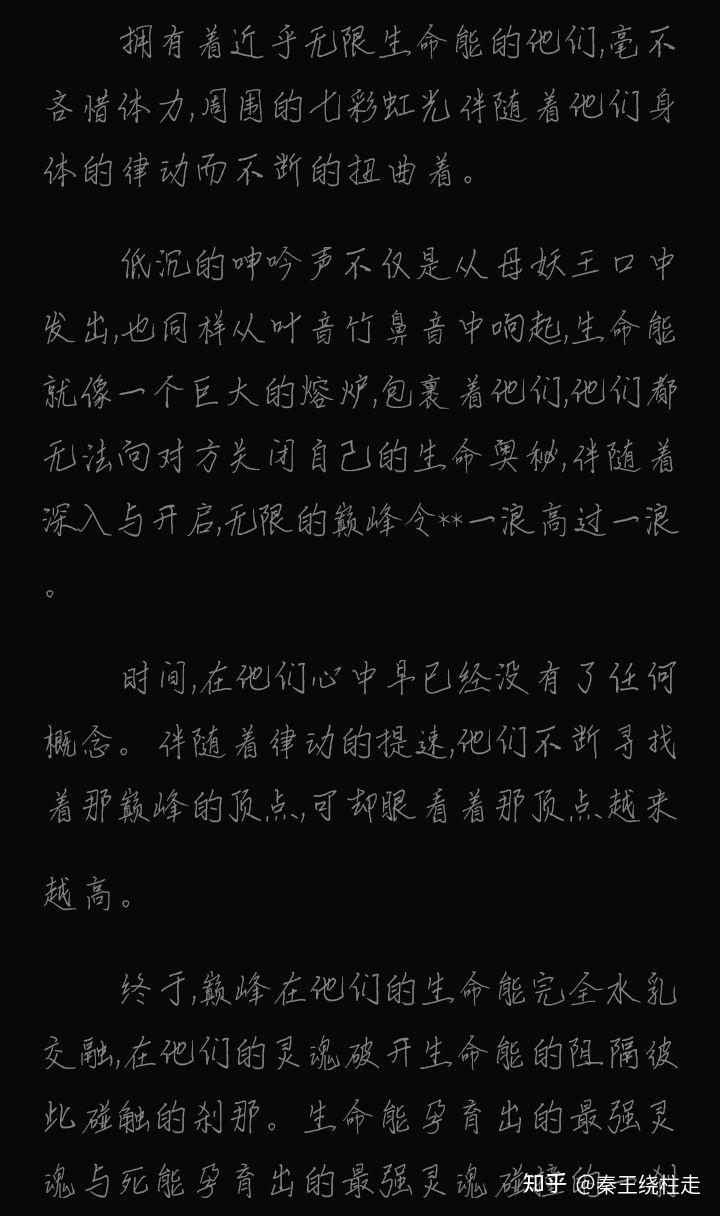 拥有着近乎无限生命能的他们,毫不
吝惜体力,周围的七彩虹光伴随着他们身
体的律动而不断的扭曲着。
低沉的呻吟声不仅是从母妖王口中
发出,也同样从叶音竹鼻音中响起,生命能
就像一个巨大的熔炉,包裹着他们,他们都
无法向对方关闭自己的生命奥秘,伴随着
深入与开启,无限的巅峰令**一浪高过一浪
。
时间,在他们心中早已经没有了任何
概念。伴随着律动的提速,他们不断寻找
着那巅峰的顶点,可却眼看着那顶点越来
越高。
终于,巅峰在他们的生命能完全水乳
交融,在他们的灵魂破开生命能的阻隔彼
此碰触的刹那。生命能孕育出的最强灵
魂与死能孕育出的最强灵魂碰撞的一刹
知乎 @秦王绕柱走